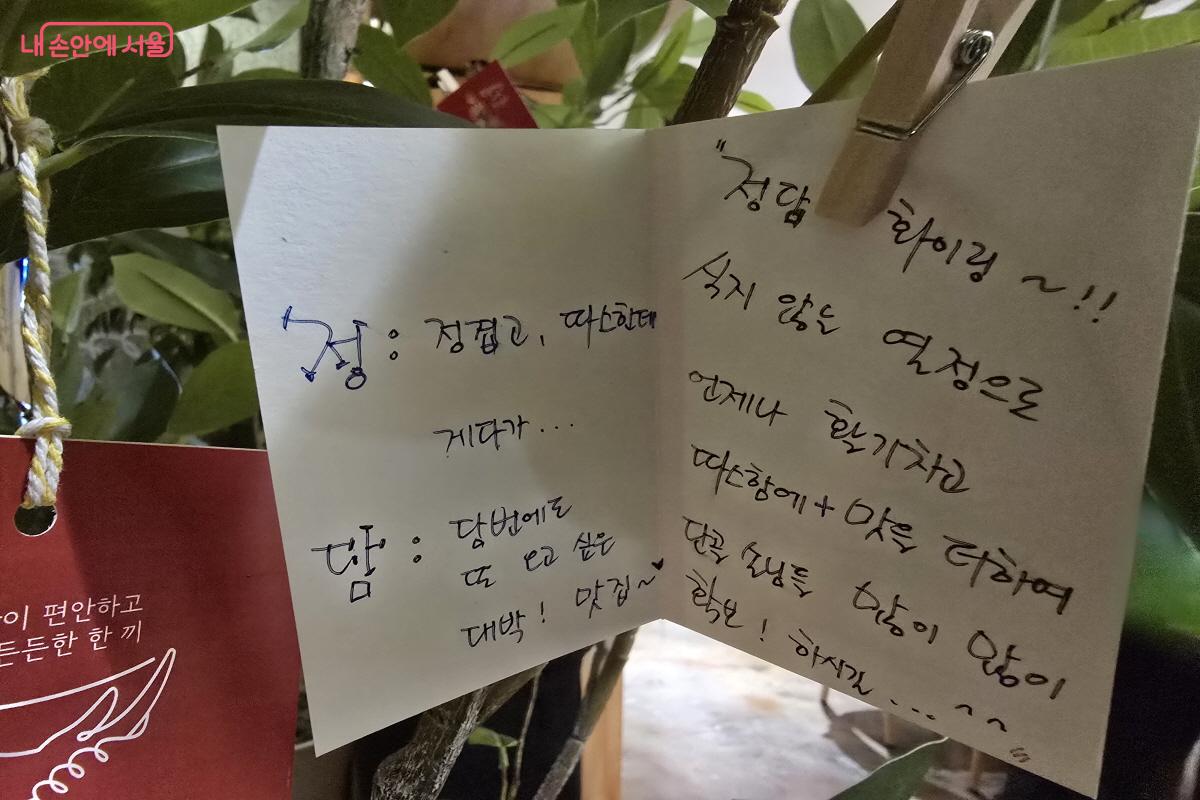 내 손안에 서울
정 : 정겹고, 따스한데
게다가...
담 : 담번에도
또 오고 싶은
대박! 맛집~♥
"정담 화이링~!!
식지 않는 열정으로
언제나 활기차고
따스함에+맛을 더하여
단골 손님들 많이 많이
확보! 하시길...~~"
이 편안하고
든든한 한 끼